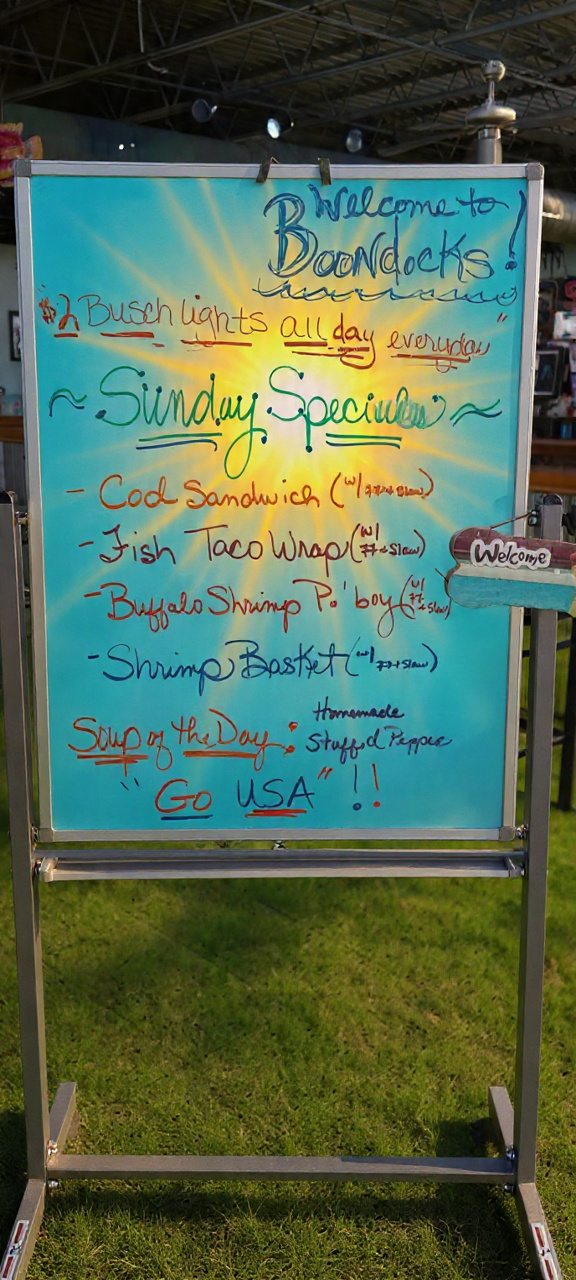 Welcome to
Boondocks!
"$2 Busch lights all day everyday"
~ Sunday Specials ~
- Cod Sandwich (w/ FF + Slaw)
- Fish Taco Wrap (w/ FF + Slaw)
- Buffalo Shrimp Po'boy (w/ FF + Slaw)
- Shrimp Basket (w/ FF + Slaw)
Soup of the Day: Homemade
Stuffed Pepper
"Go USA"!!
Welcome